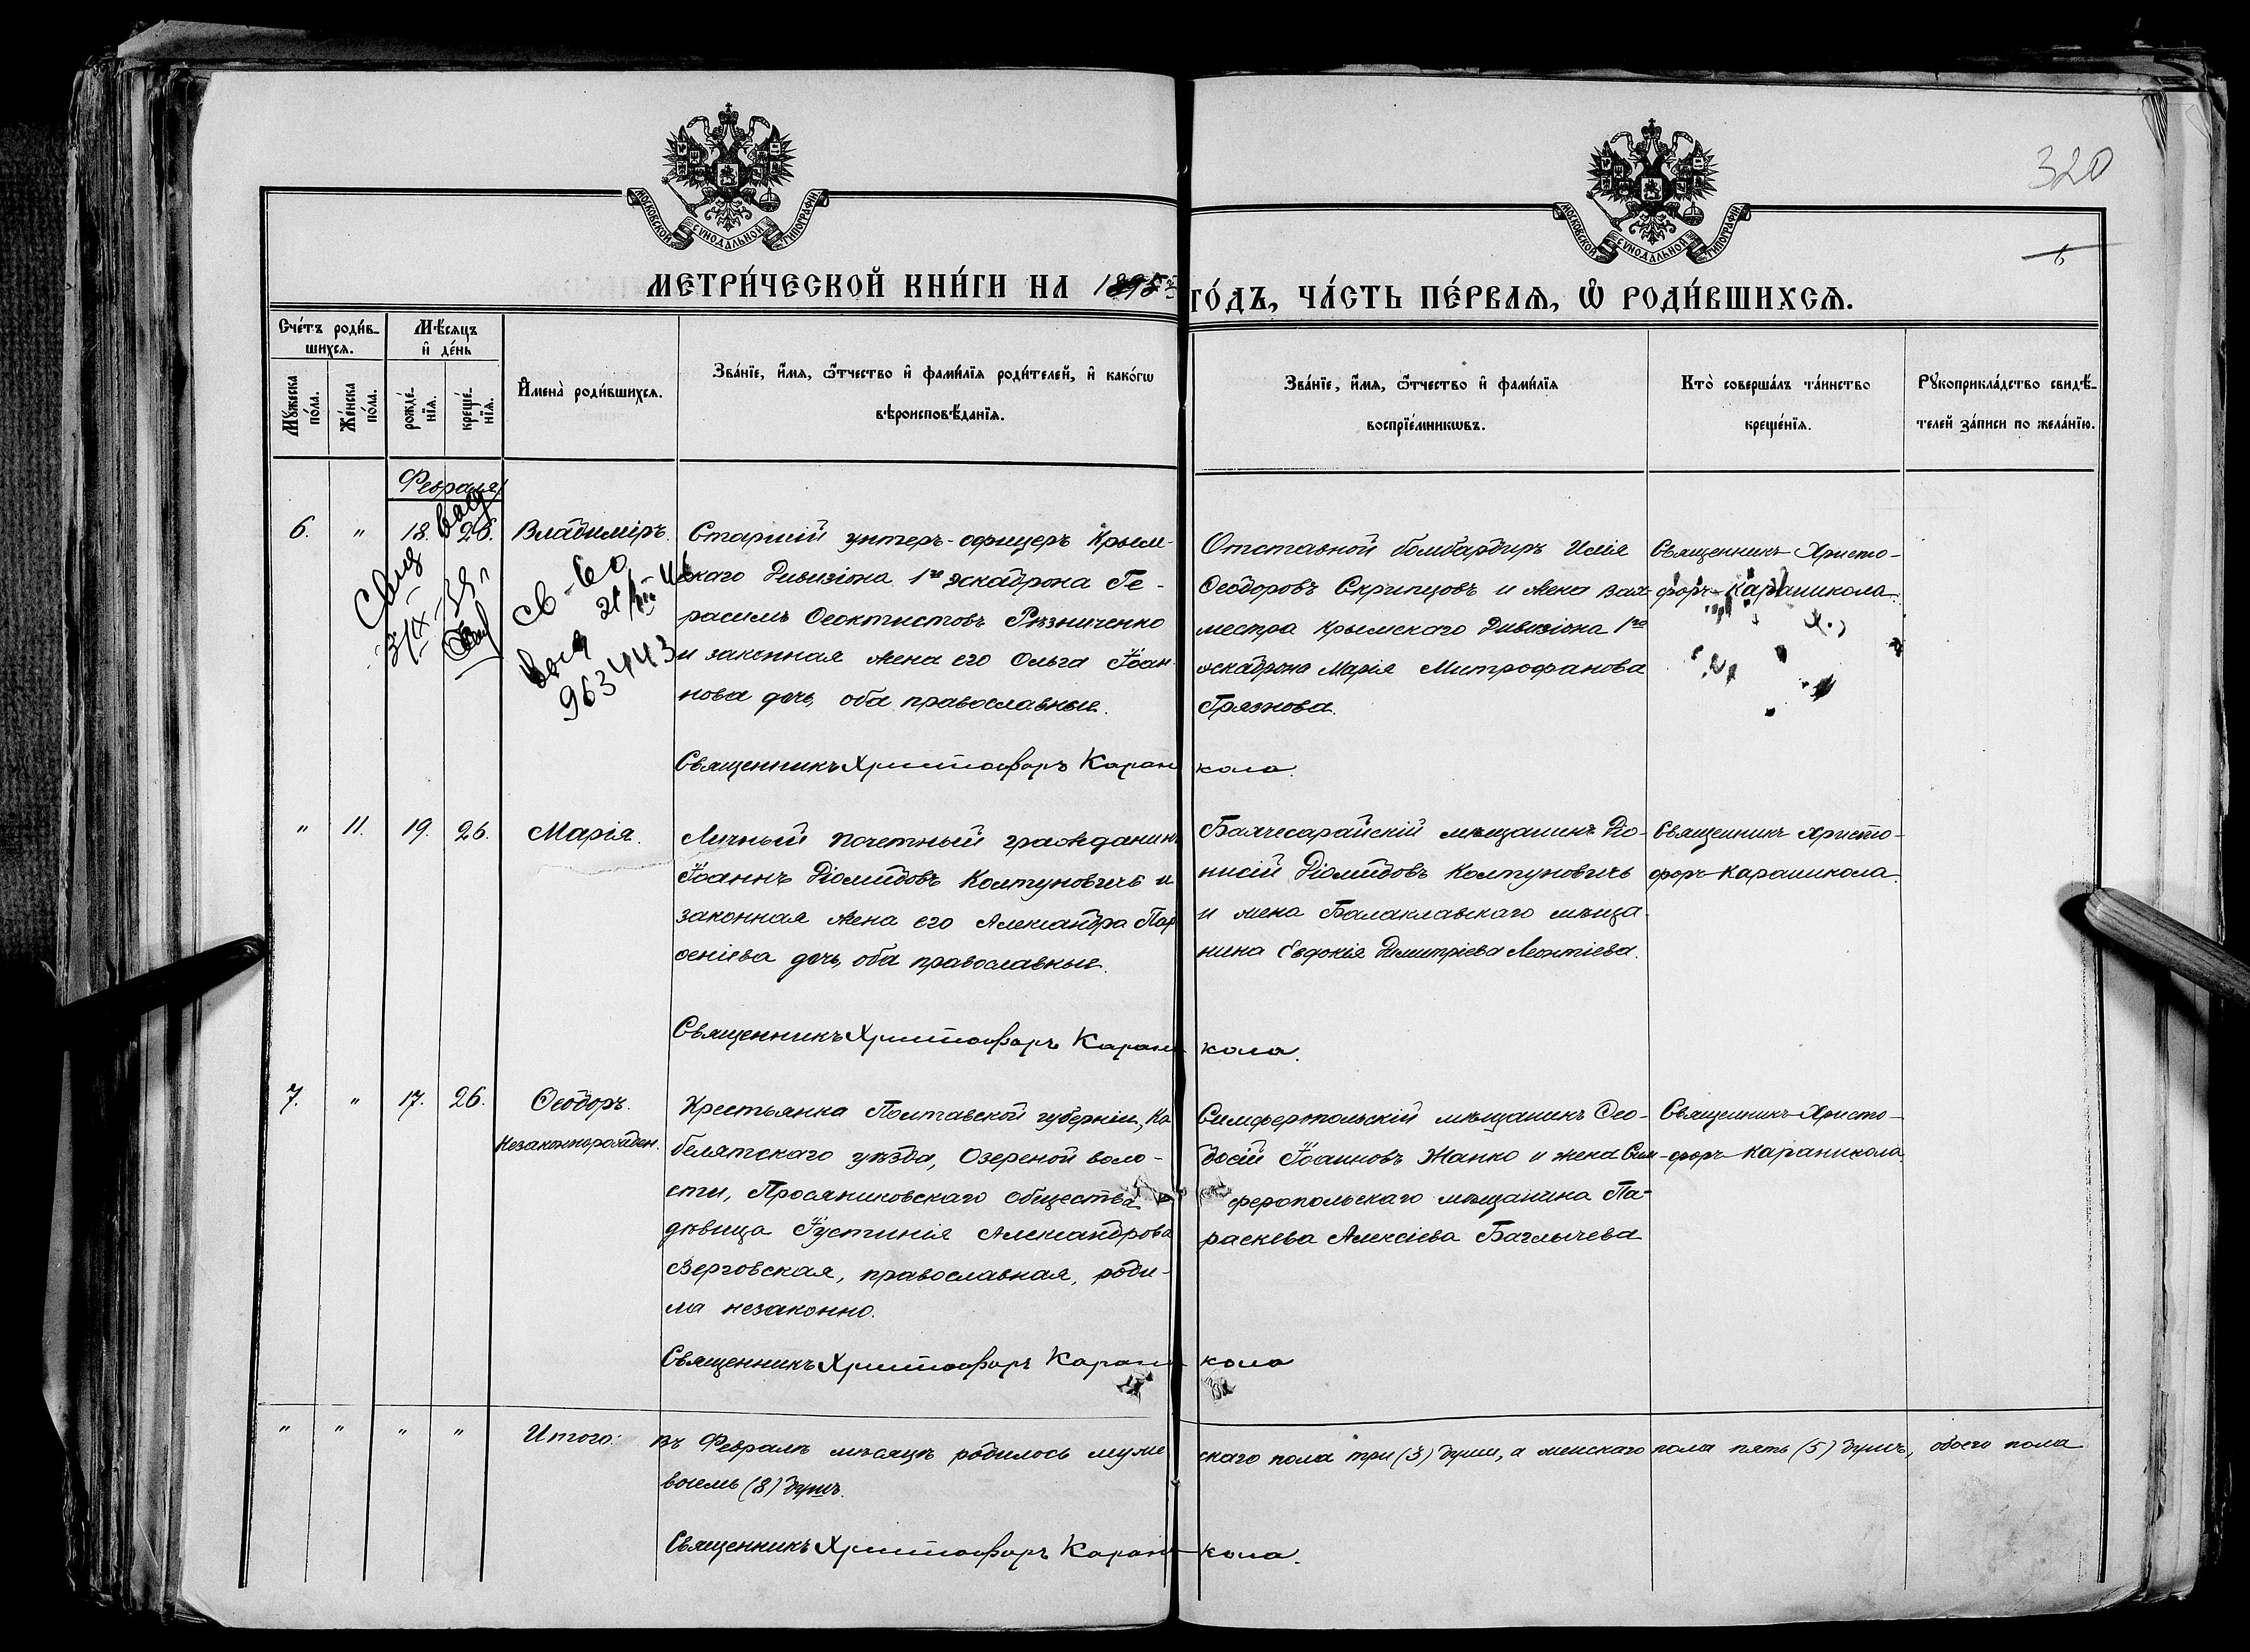 320
6
МОСКОВСКОЙ СѴНОДАЛЬНОЙ ТИПОГРАФІИ
МОСКОВСКОЙ СѴНОДАЛЬНОЙ ТИПОГРАФІИ
МЕТРИ́ЧЕСКОЙ КНИ́ГИ НА 1895
ГО́ДЪ, ЧА́СТЬ ПЕ́РВАѦ, Ѽ РОДИ́ВШИХСѦ.
Сче́тъ роди́в-
шихсѧ.
Мꙋ́жеска по́ла.
Же́нска по́ла.
Мѣ́сѧцъ
и҆ де́нь
рожде́-нїѧ.
креще́-нїѧ.
И҆мена̀ роди́вшихсѧ.
Зва́нїе, и҆́мѧ, ѻ҆́тчество и҆ фами́лїѧ роди́телей, и҆ како́гѡ
вѣроисповѣ́данїѧ.
Зва́нїе, и҆́мѧ, ѻ҆́тчество и҆ фами́лїѧ
воспрїе́мникѡвъ.
Кто̀ соверша́лъ та́инство
креще́нїѧ.
Рꙋкоприкла́дство свидѣ́-
телей за́писи по жела́нїю.
Февраля
6. " 18. 26. Владиміръ.
Старшій унтеръ-офицеръ Крым-
скаго Дивизіона 1го эскадрона Ге-
расимъ Ѳеоктистовъ Рѣзниченко
и законная жена его Ольга Іоан-
нова дочь, оба православные.
Отставной бомбардиръ Илія
Ѳеодоровъ Скрипцовъ и жена вах-
местра Крымскаго Дивизіона 1го
эскадрона Марія Митрофанова
Грязнова.
Священникъ Христо-
форъ Караникола.
св-во
963443
Священникъ Христофоръ Караникола.
" 11. 19. 26. Марія.
Личный почетный гражданинъ
Іоаннъ Діомидовъ Колтуновичъ и
законная жена его Александра Пар
ѳеніева дочь, оба православные.
Бахчесарайскій мѣщанинъ Діо-
нисій Діомидовъ Колтуновичъ
и жена Балаклавскаго мѣща-
нина Евдокія Димитріева Леонтіева.
Священникъ Христо-
форъ Караникола.
Священникъ Христофоръ Караникола.
7. " 17. 26. Ѳеодоръ.
Незаконнорожден.
Крестьянка Полтавской губерніи, Ко
белятскаго уѣзда, Озереной воло-
сти, Просяниковскаго общества
дѣвица Іустинія Александрова
Верговская, православная, роди-
ла незаконно.
Симферопольскій мѣщанинъ Ѳео-
досій Іоанновъ Жанко и жена Сим-
феропольскаго мѣщанина Па-
раскева Алексіева Баглычева
Священникъ Христо-
форъ Караникола.
Священникъ Христофоръ Караникола
" " " " Итого:
Въ Февралѣ мѣсяцѣ родилось мужескаго пола три (3) души, а женскаго пола пять (5) душъ, обоего пола
восемь (8) душъ.
Священникъ Христофоръ Караникола.